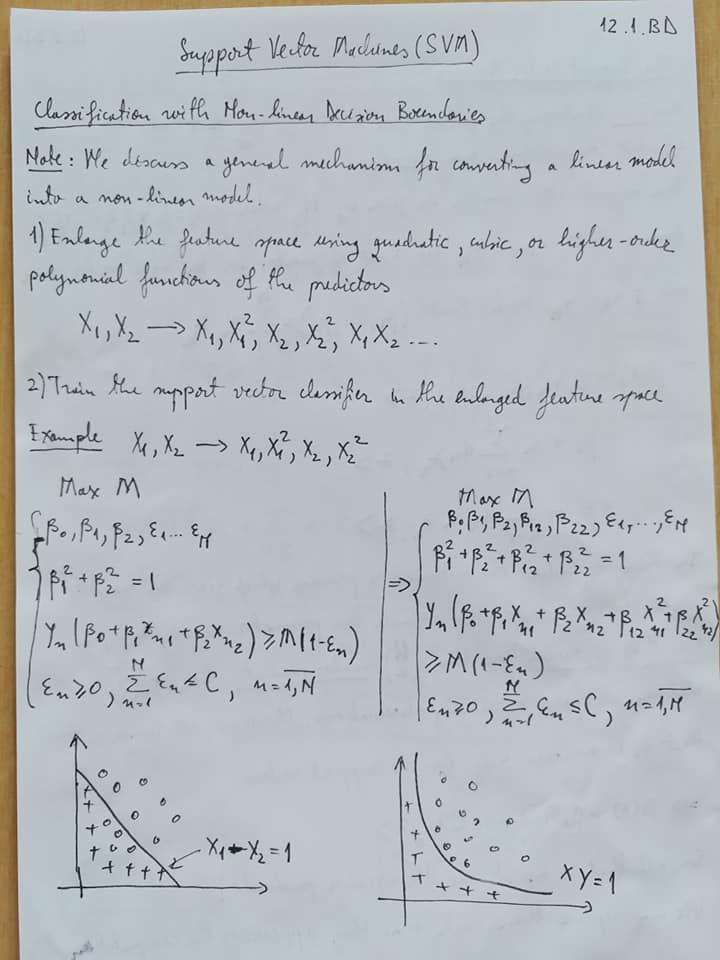 12.1.BD
Support Vector Machines (SVM)
Classification with Non-linear Decision Boundaries
Note: We discuss a general mechanism for converting a linear model
into a non-linear model.
1) Enlarge the feature space using quadratic, cubic, or higher-order
polynomial functions of the predictors
X₁, X₂ → X₁, X₁², X₂, X₂², X₁X₂ ...
2) Train the support vector classifier in the enlarged feature space
Example X₁, X₂ → X₁, X₁², X₂, X₂²
Max M
β₀, β₁, β₂, ε₁... ε_N
β₁² + β₂² = 1
y_n (β₀ + β₁x_n1 + β₂x_n2) ≥ M(1-ε_n)
ε_n ≥ 0, Σ_{n=1}^{N} ε_n ≤ C, n = \overline{1,N}
⇒
Max M
β₀, β₁, β₂, β₁₂, β₂₂, ε₁, ..., ε_N
β₁² + β₂² + β₁₂² + β₂₂² = 1
y_n (β₀ + β₁X_n1 + β₂X_n2 + β₁₂X²_n1 + β₂₂X²_n2)
≥ M(1-ε_n)
ε_n ≥ 0, Σ_{n=1}^{N} ε_n ≤ C, n = \overline{1,N}
XY = 1